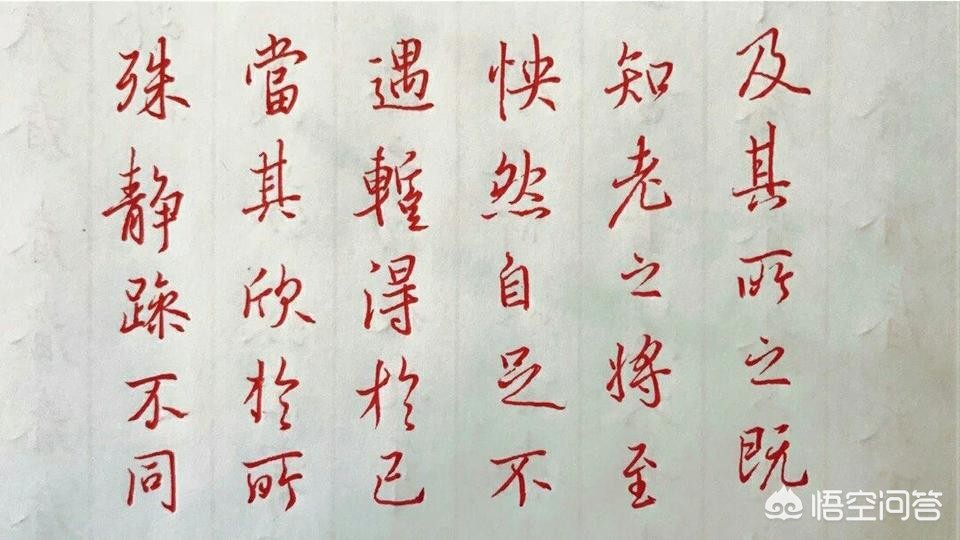 及其所之既
知老之将至
怏然自足不
遇蹔得於己
當其欣於所
殊静躁不同
悟空问答